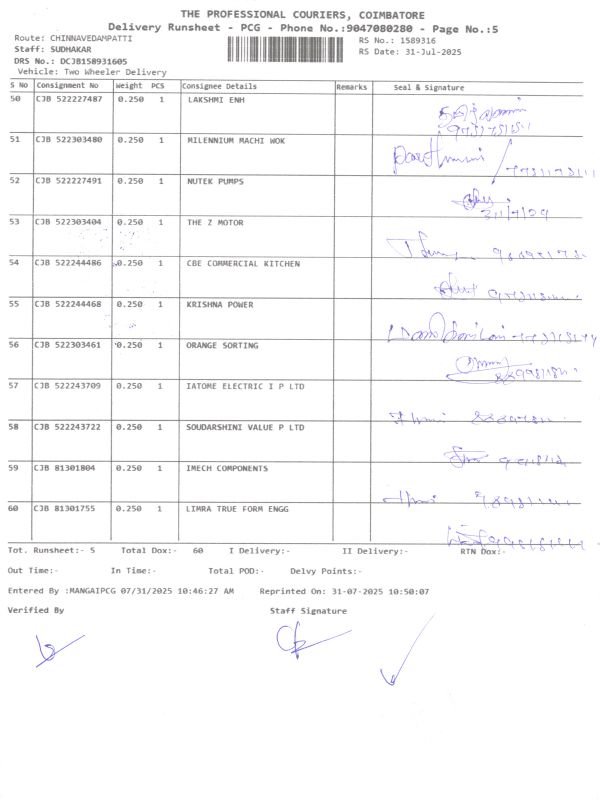 THE PROFESSIONAL COURIERS, COIMBATORE
Delivery Runsheet - PCG - Phone No.:9047080280 - Page No.:5
Route: CHINNAVEDAMPATTI
RS No.: 1589316
Staff: SUDHAKAR
RS Date: 31-Jul-2025
DRS No.: DCJB158931605
Vehicle: Two Wheeler Delivery
S No Consignment No Weight PCS Consignee Details Remarks Seal & Signature
50 CJB 522227487 0.250 1 LAKSHMI ENH
51 CJB 522303480 0.250 1 MILENNIUM MACHI WOK
52 CJB 522227491 0.250 1 NUTEK PUMPS
53 CJB 522303404 0.250 1 THE Z MOTOR
54 CJB 522244486 0.250 1 CBE COMMERCIAL KITCHEN
55 CJB 522244468 0.250 1 KRISHNA POWER
56 CJB 522303461 0.250 1 ORANGE SORTING
57 CJB 522243709 0.250 1 IATOME ELECTRIC I P LTD
58 CJB 522243722 0.250 1 SOUDARSHINI VALUE P LTD
59 CJB 81301804 0.250 1 IMECH COMPONENTS
60 CJB 81301755 0.250 1 LIMRA TRUE FORM ENGG
Tot. Runsheet:- 5 Total Dox:- 60 I Delivery:- II Delivery:- RTN Dox:-
Out Time:- In Time:- Total POD:- Delvy Points:-
Entered By :MANGAIPCG 07/31/2025 10:46:27 AM Reprinted On: 31-07-2025 10:50:07
Verified By Staff Signature